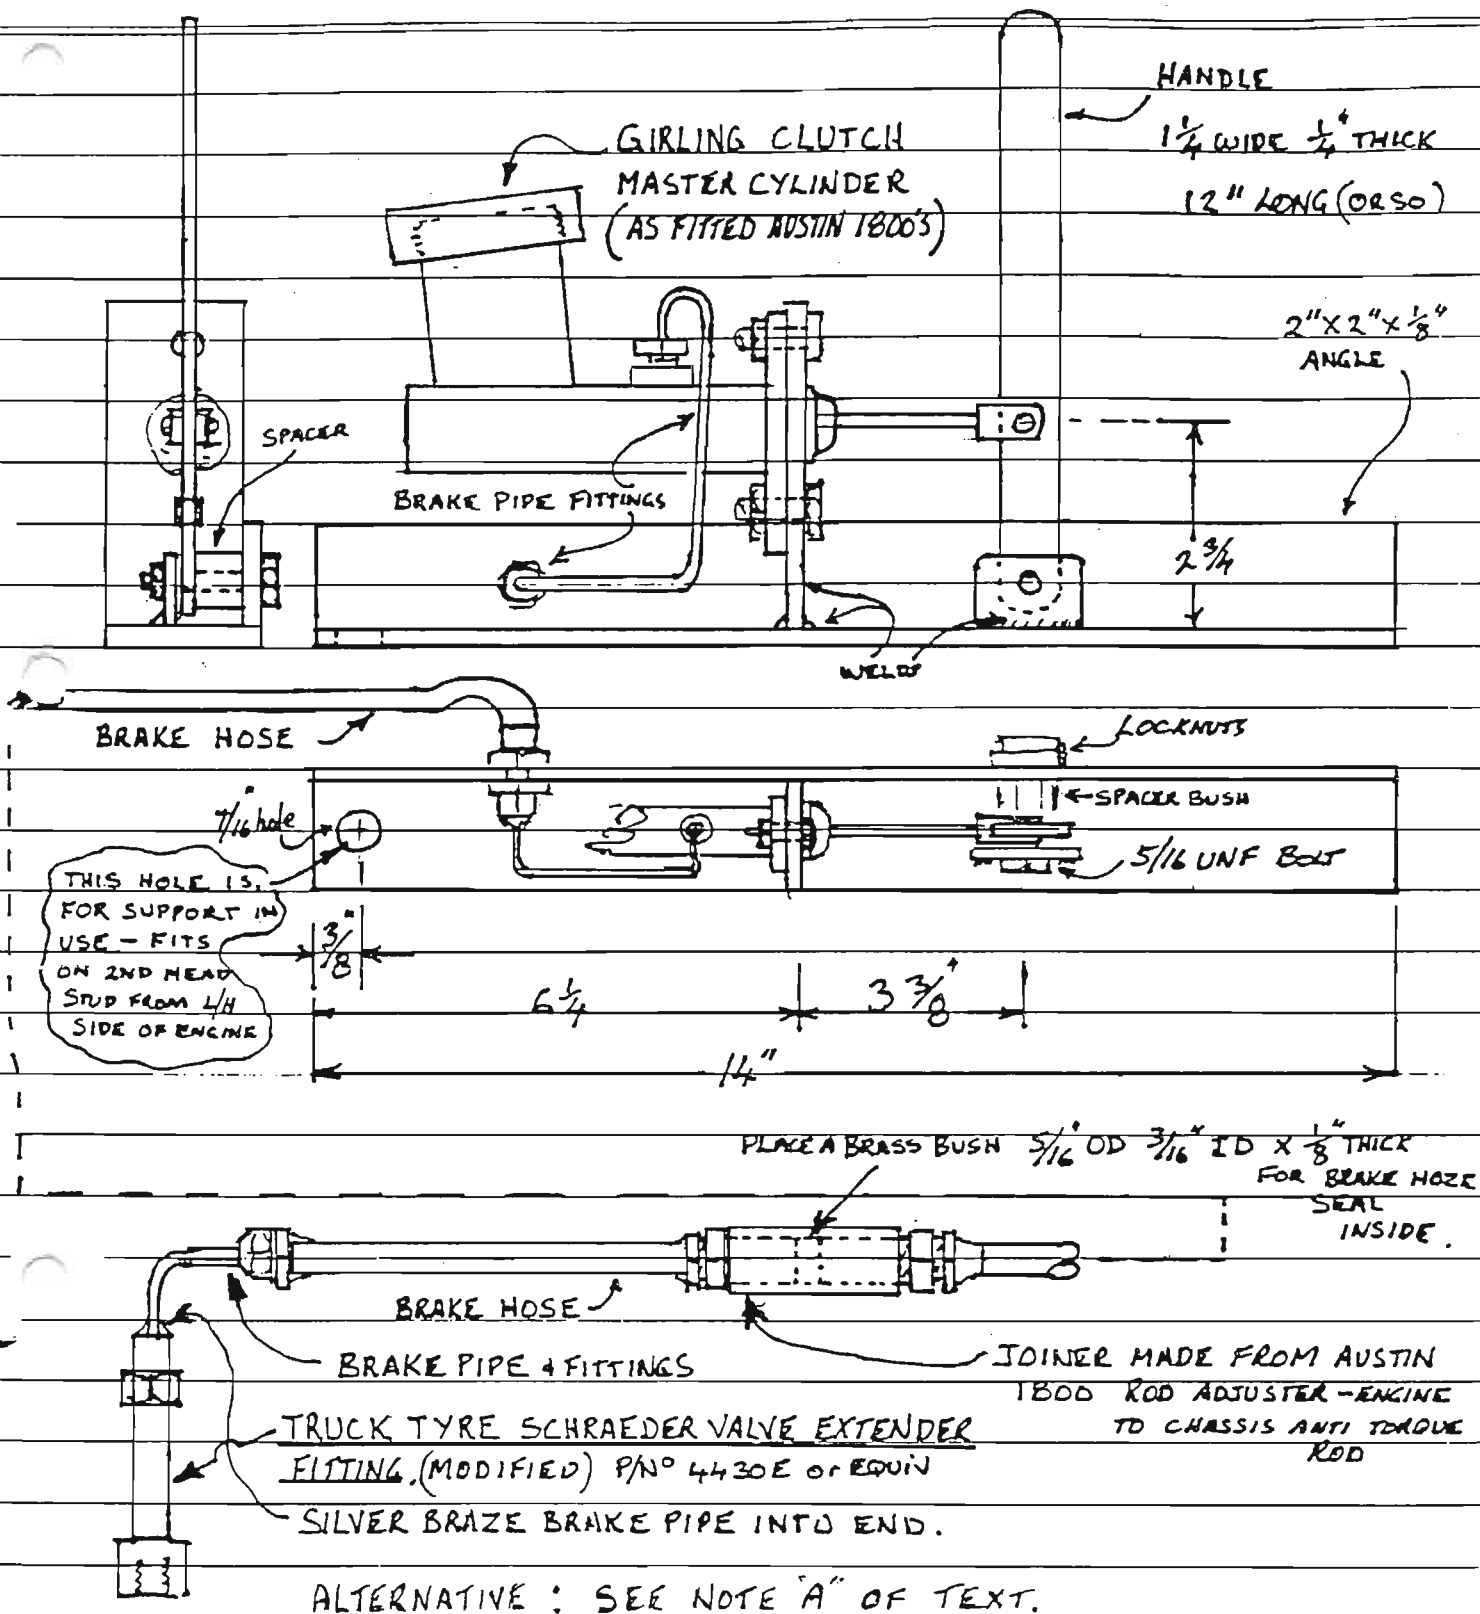 HANDLE
1 1/4 WIDE 1/4" THICK
12" LONG (OR SO)
GIRLING CLUTCH
MASTER CYLINDER
(AS FITTED AUSTIN 1800'S)
2" X 2" X 1/8"
ANGLE
SPACER
BRAKE PIPE FITTINGS
2 3/4
WELDS
BRAKE HOSE
LOCKNUTS
SPACER BUSH
7/16" hole
5/16 UNF BOLT
THIS HOLE IS
FOR SUPPORT IN
USE - FITS
ON 2ND HEAD
STUD FROM L/H
SIDE OF ENGINE
3/8"
6 1/4
3 3/8"
14"
PLACE A BRASS BUSH 5/16" OD 3/16" ID X 1/8" THICK
FOR BRAKE HOZE
SEAL
INSIDE.
BRAKE HOSE
BRAKE PIPE & FITTINGS
JOINER MADE FROM AUSTIN
1800 ROD ADJUSTER - ENGINE
TO CHASSIS ANTI TORQUE
ROD
TRUCK TYRE SCHRAEDER VALVE EXTENDER
FITTING. (MODIFIED) P/Nº 4430E or EQUIV
SILVER BRAZE BRAKE PIPE INTO END.
ALTERNATIVE : SEE NOTE "A" OF TEXT.